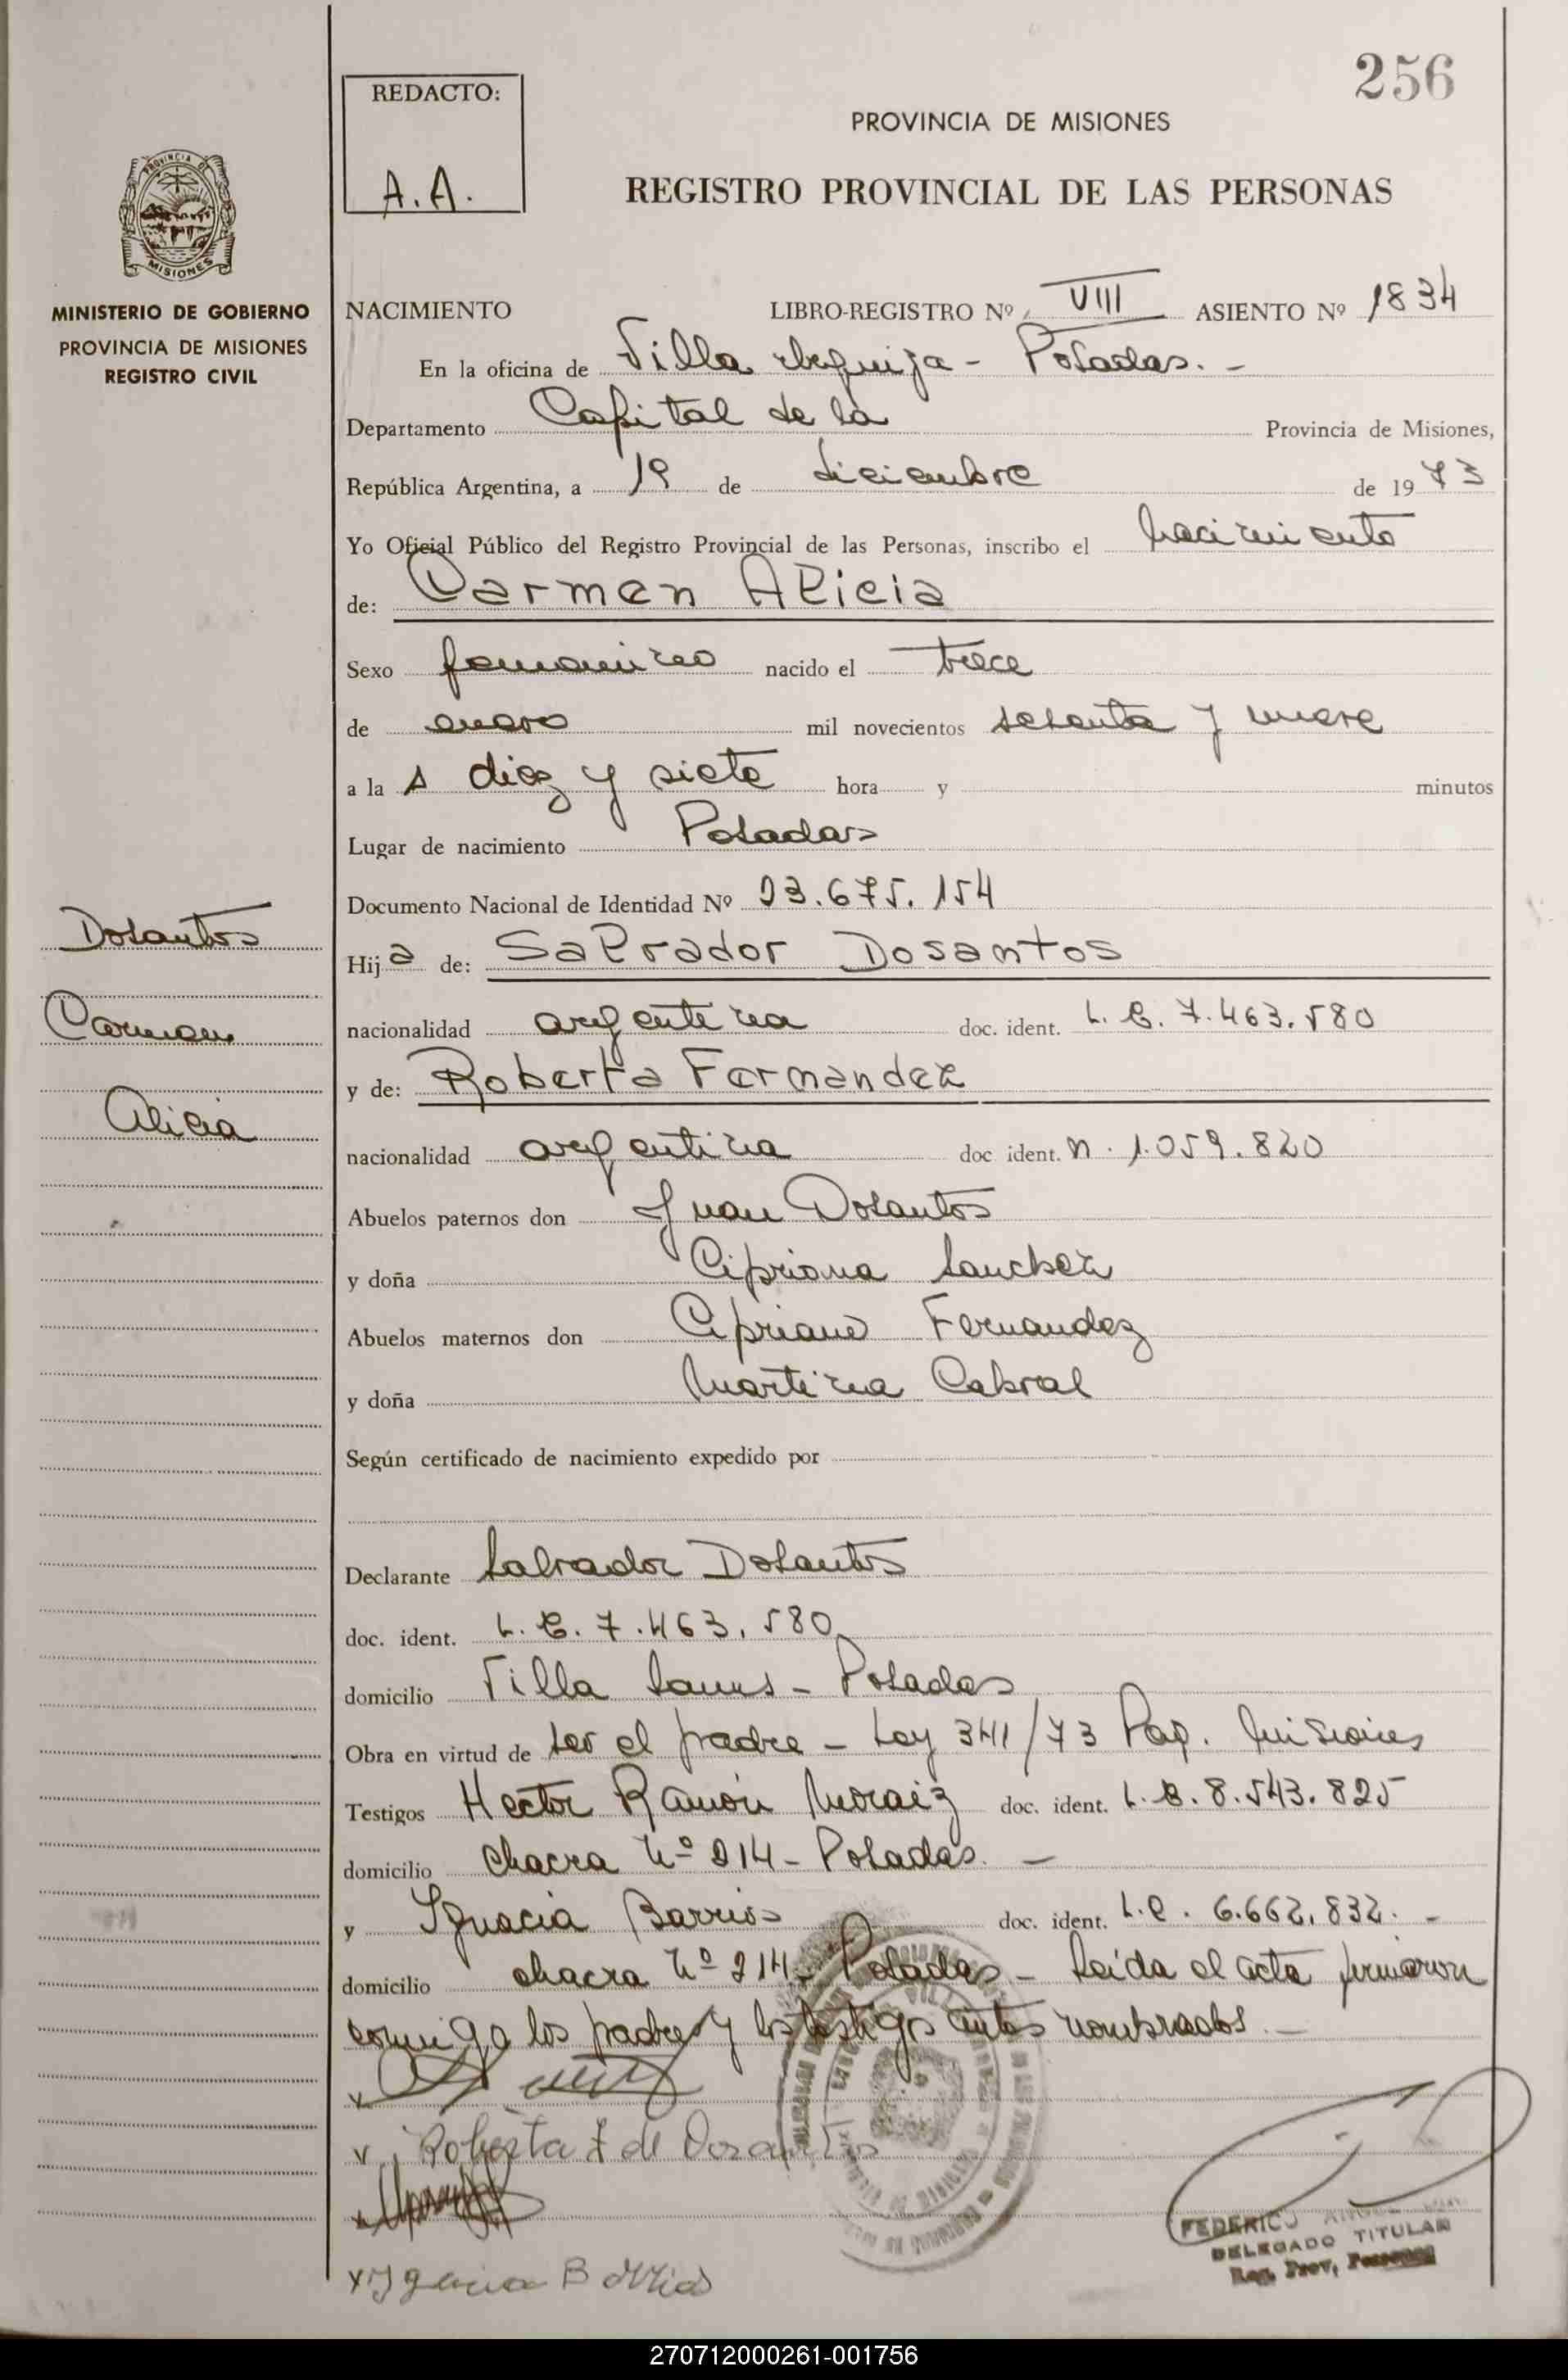 256
REDACTO:
A.A.
PROVINCIA DE MISIONES
REGISTRO PROVINCIAL DE LAS PERSONAS
PROVINCIA DE
MISIONES
MINISTERIO DE GOBIERNO
PROVINCIA DE MISIONES
REGISTRO CIVIL
NACIMIENTO LIBRO-REGISTRO Nº VIII ASIENTO Nº 1834
En la oficina de Villa Urquiza - Posadas. -
Departamento Capital de la Provincia de Misiones,
República Argentina, a 19 de diciembre de 1973
Yo Oficial Público del Registro Provincial de las Personas, inscribo el nacimiento
de: Carmen Alicia
Sexo femenino nacido el trece
de enero mil novecientos setenta y nueve
a la s diez y siete hora y minutos
Lugar de nacimiento Posadas
Documento Nacional de Identidad Nº 23.675.154
Dosantos
Hij a de: Salvador Dosantos
Carmen
nacionalidad argentina doc. ident. L.E. 7.463.580
y de: Roberta Fernandez
Alicia
nacionalidad argentina doc ident. n. 1.059.820
Abuelos paternos don Juan Dosantos
y doña Cipriana Sanchez
Abuelos maternos don Cipriano Fernandez
y doña Martina Cabral
Según certificado de nacimiento expedido por
Declarante Salvador Dosantos
doc. ident. L.E. 7.463.580
domicilio Villa Lanus - Posadas
Obra en virtud de ser el padre - Ley 341/73 Pag. Misiones
Testigos Hector Ramón doc. ident. L.E. 8.543.825
domicilio chacra Nº 214 - Posadas. -
y Ignacia Barrios doc. ident. L.C. 6.662.832. -
domicilio chacra Nº 214 - Posadas - Leída el acta firmaron
conmigo los padres y los testigos antes nombrados. -
x
x Roberta F de Dosantos
x
x Ygnacia Barrios
FEDERICO
DELEGADO TITULAR
Reg. Prov. Personas
270712000261-001756